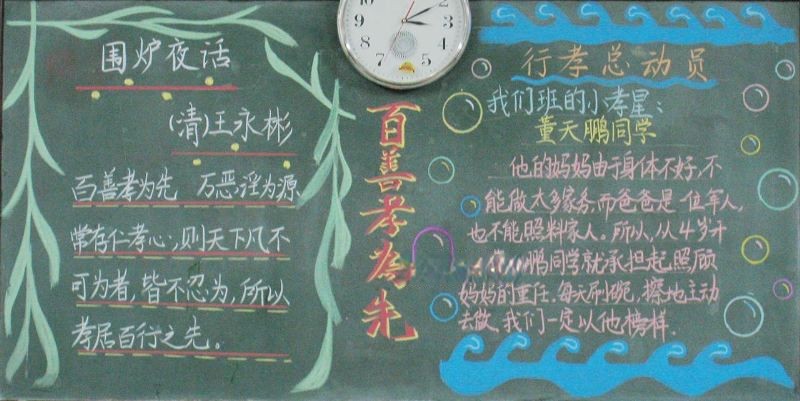 围炉夜话
(清)王永彬
百善孝为先 万恶淫为源
常存仁孝心,则天下凡不
可为者,皆不忍为,所以
孝居百行之先。
百善孝為先
12
1
2
3
4
5
7
8
9
10
行孝总动员
我们班的小孝星:
董天鹏同学
他的妈妈由于身体不好,不
能做太多家务,而爸爸是一位军人,
也不能照料家人。所以,从4岁开
鹏同学就承担起照顾
妈妈的重任。每天刷碗,擦地主动
去做。我们一定以他榜样.